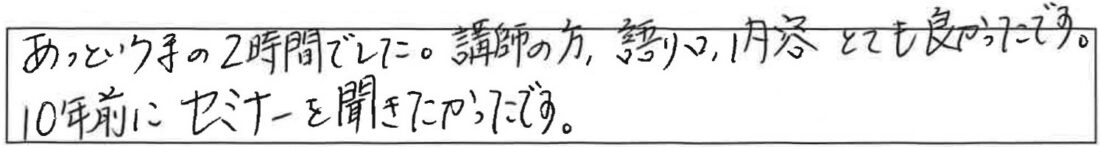 あっという間の2時間でした。講師の方,語り口,内容とても良かったです。
10年前にセミナーを聞きたかったです。